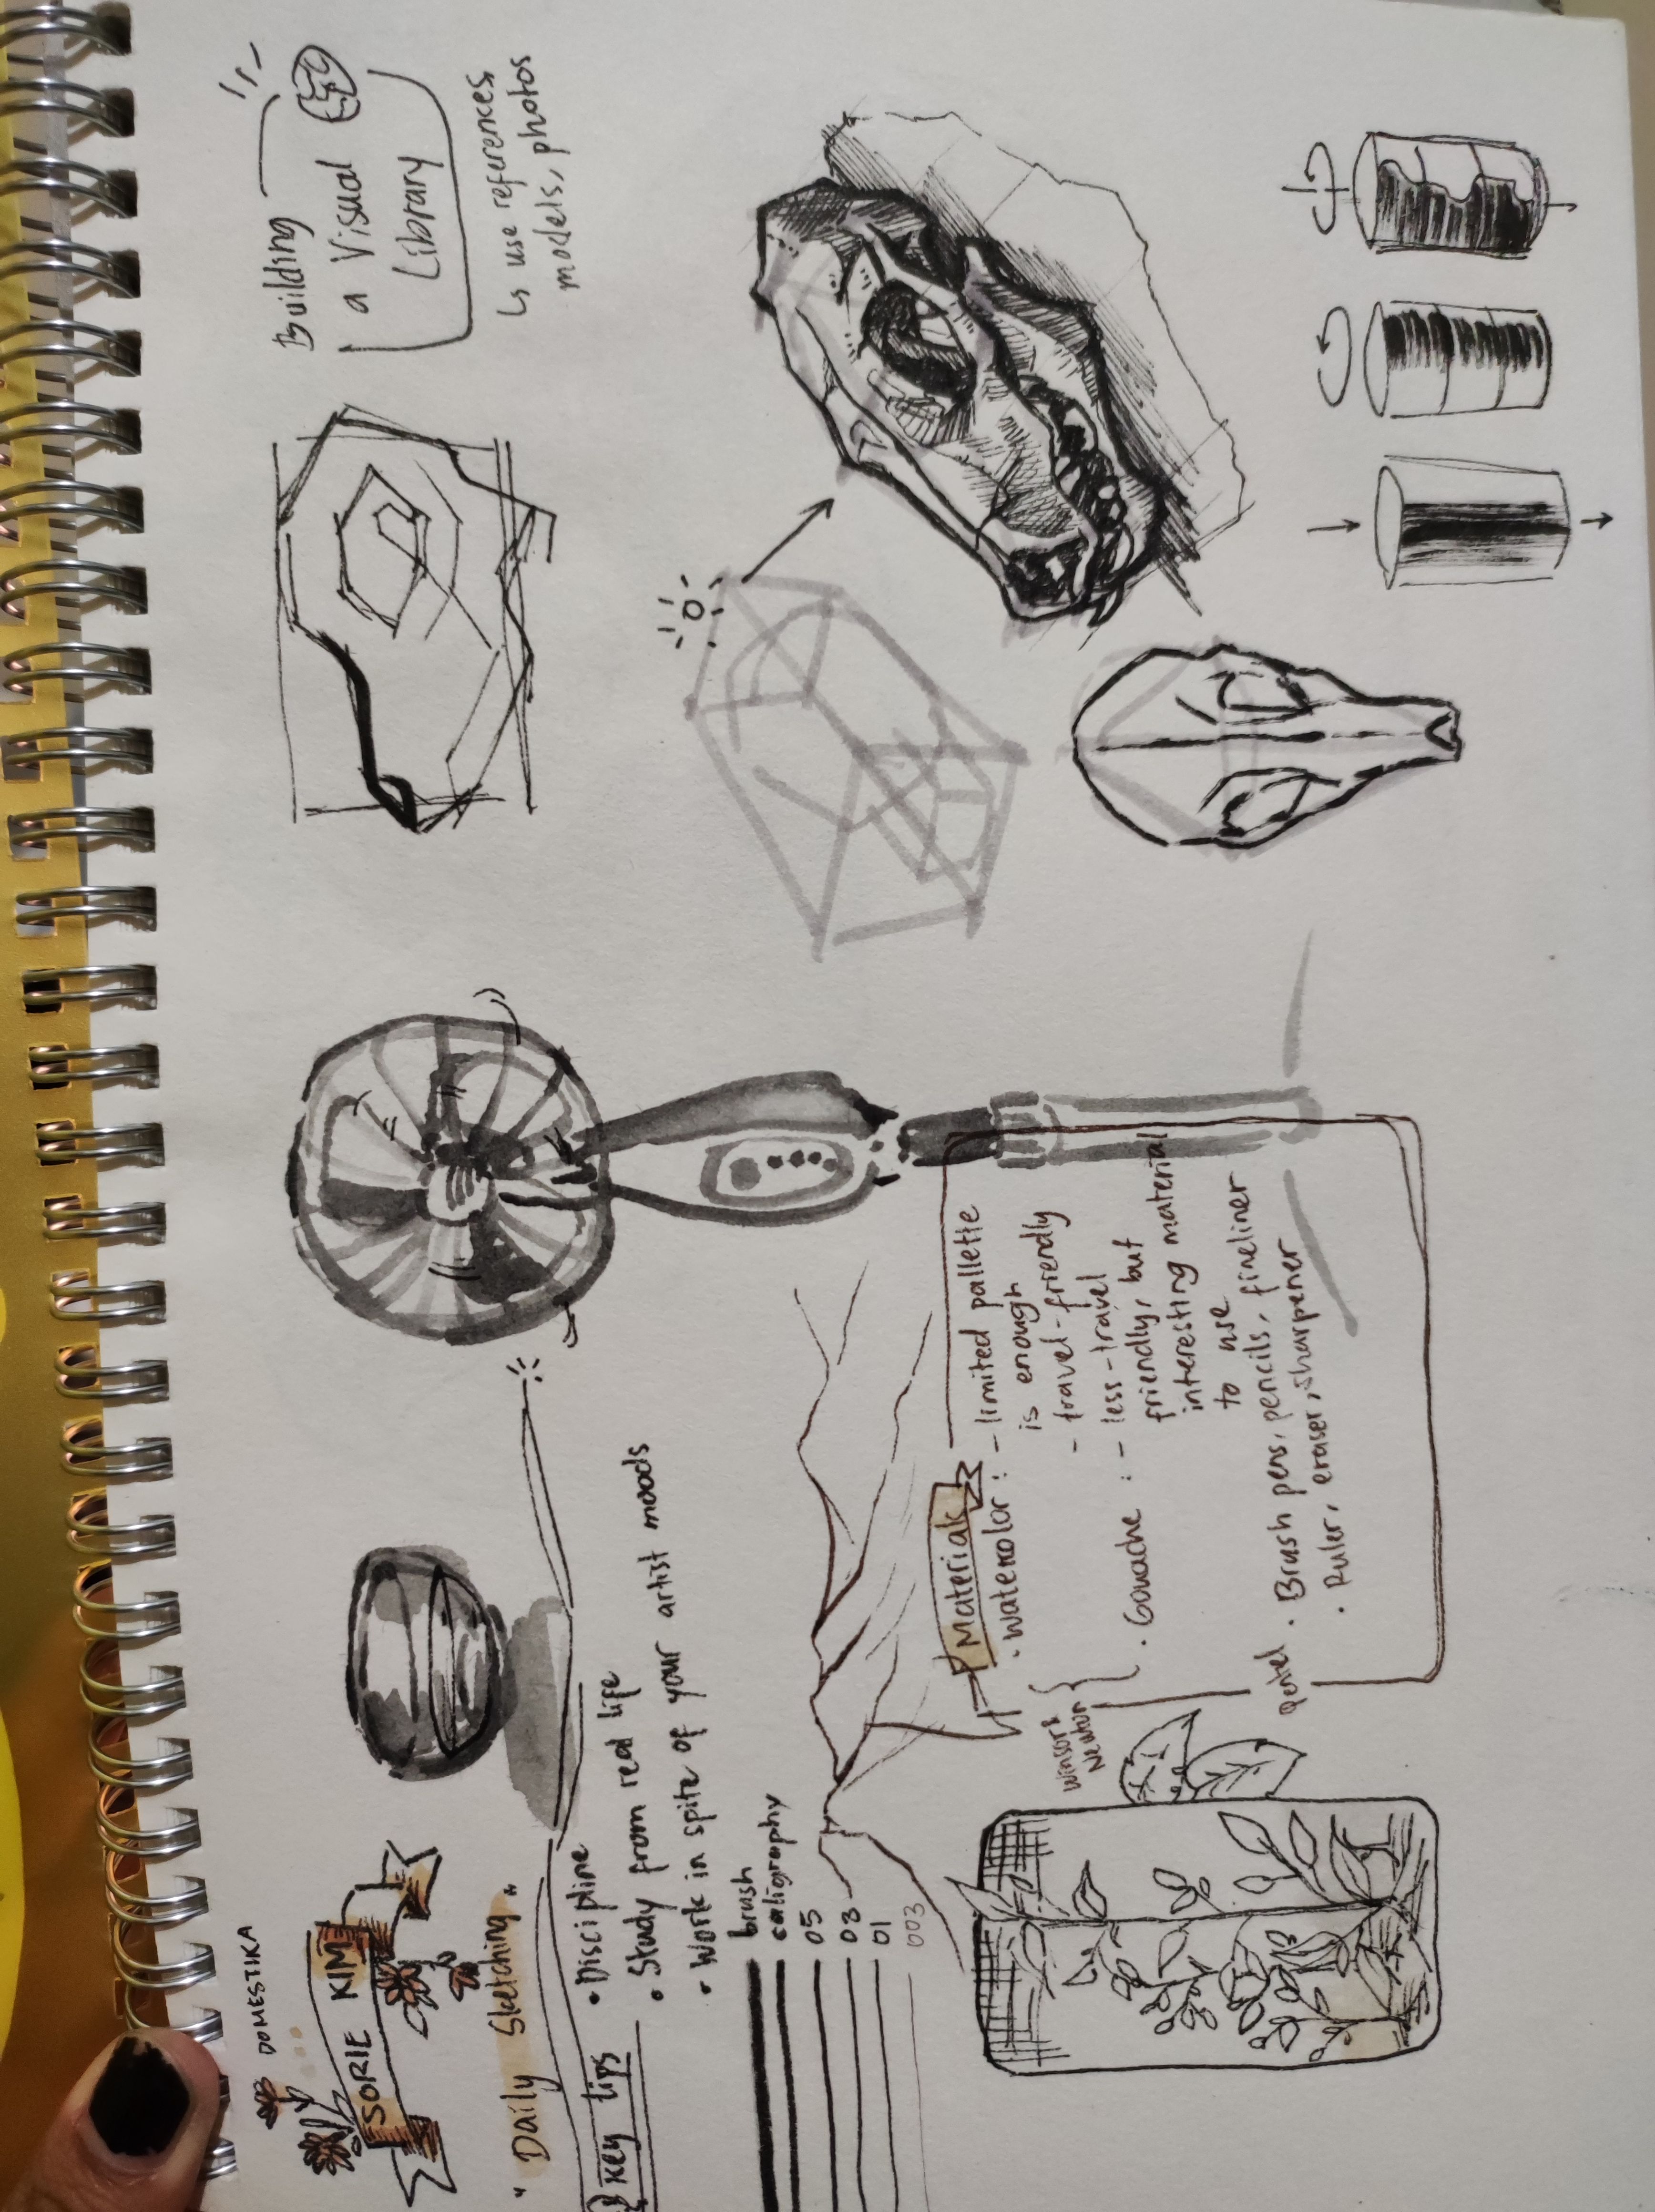 DOMESTIKA
SORIE KIM
"Daily Sketching"
key tips
• Discipline
• Study from real life
• Work in spite of your artist moods
brush
caligraphy
05
03
01
003
Material
• Watercolor : - limited pallette
is enough
- travel-friendly
Winsor &
Newton
• Gouache : - less-travel
friendly, but
interesting material
to use
pentel • Brush pens, pencils, fineliner
• Ruler, eraser, sharpener
Building
a Visual
Library
↳ use references
models, photos